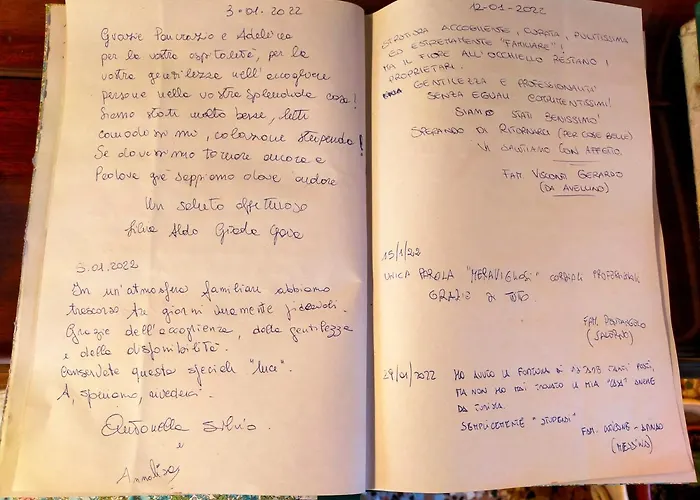 3.01.2022
Grazie Pancrazio e Adelina
per la vostra ospitalità, per la
vostra gentilezza nell'accogliere
persone nella vostra splendida casa!
Siamo stati molto bene, letti
comodissimi, colazione stupenda!
Se dovessimo tornare ancora a
già sappiamo dove andare
Un saluto affettuoso
Silvia Aldo Giada
3.01.2022
In un'atmosfera familiare abbiamo
trascorso tre giorni veramente piacevoli.
Grazie dell'accoglienza, della gentilezza
e della disponibilità.
Conservate questa speciale "luce".
A, speriamo, rivederci.
Antonella Silvio
e
Annalisa
12-01-2022
STRUTTURA ACCOGLIENTE, CURATA, PULITISSIMA
ED ESTREMAMENTE "FAMILIARE"!
MA IL FIORE ALL'OCCHIELLO RESTANO I
PROPRIETARI.
GENTILEZZA E PROFESSIONALITÀ
SENZA EGUALI COMUNISSIMI!
SIAMO STATI BENISSIMO!
SPERANDO DI RITORNARCI (PER COSE BELLE)
VI SALUTIAMO CON AFFETTO.
FAM. VISCONTI GERARDO
(DA AVELLINO)
15/1/22
UNICA PAROLA "MERAVIGLIOSI" CORDIALI PROFESSIONALI
GRAZIE DI TUTO
FAM.
(SALERNO)
29/01/2022 HO AVUTO LA FORTUNA DI TANTI POSTI,
MA NON HO MAI TROVATO LA MIA "CASA" ANCHE
DA TURISTA.
SEMPLICEMENTE "STUPENDI"
FAM.
(MESSINA)